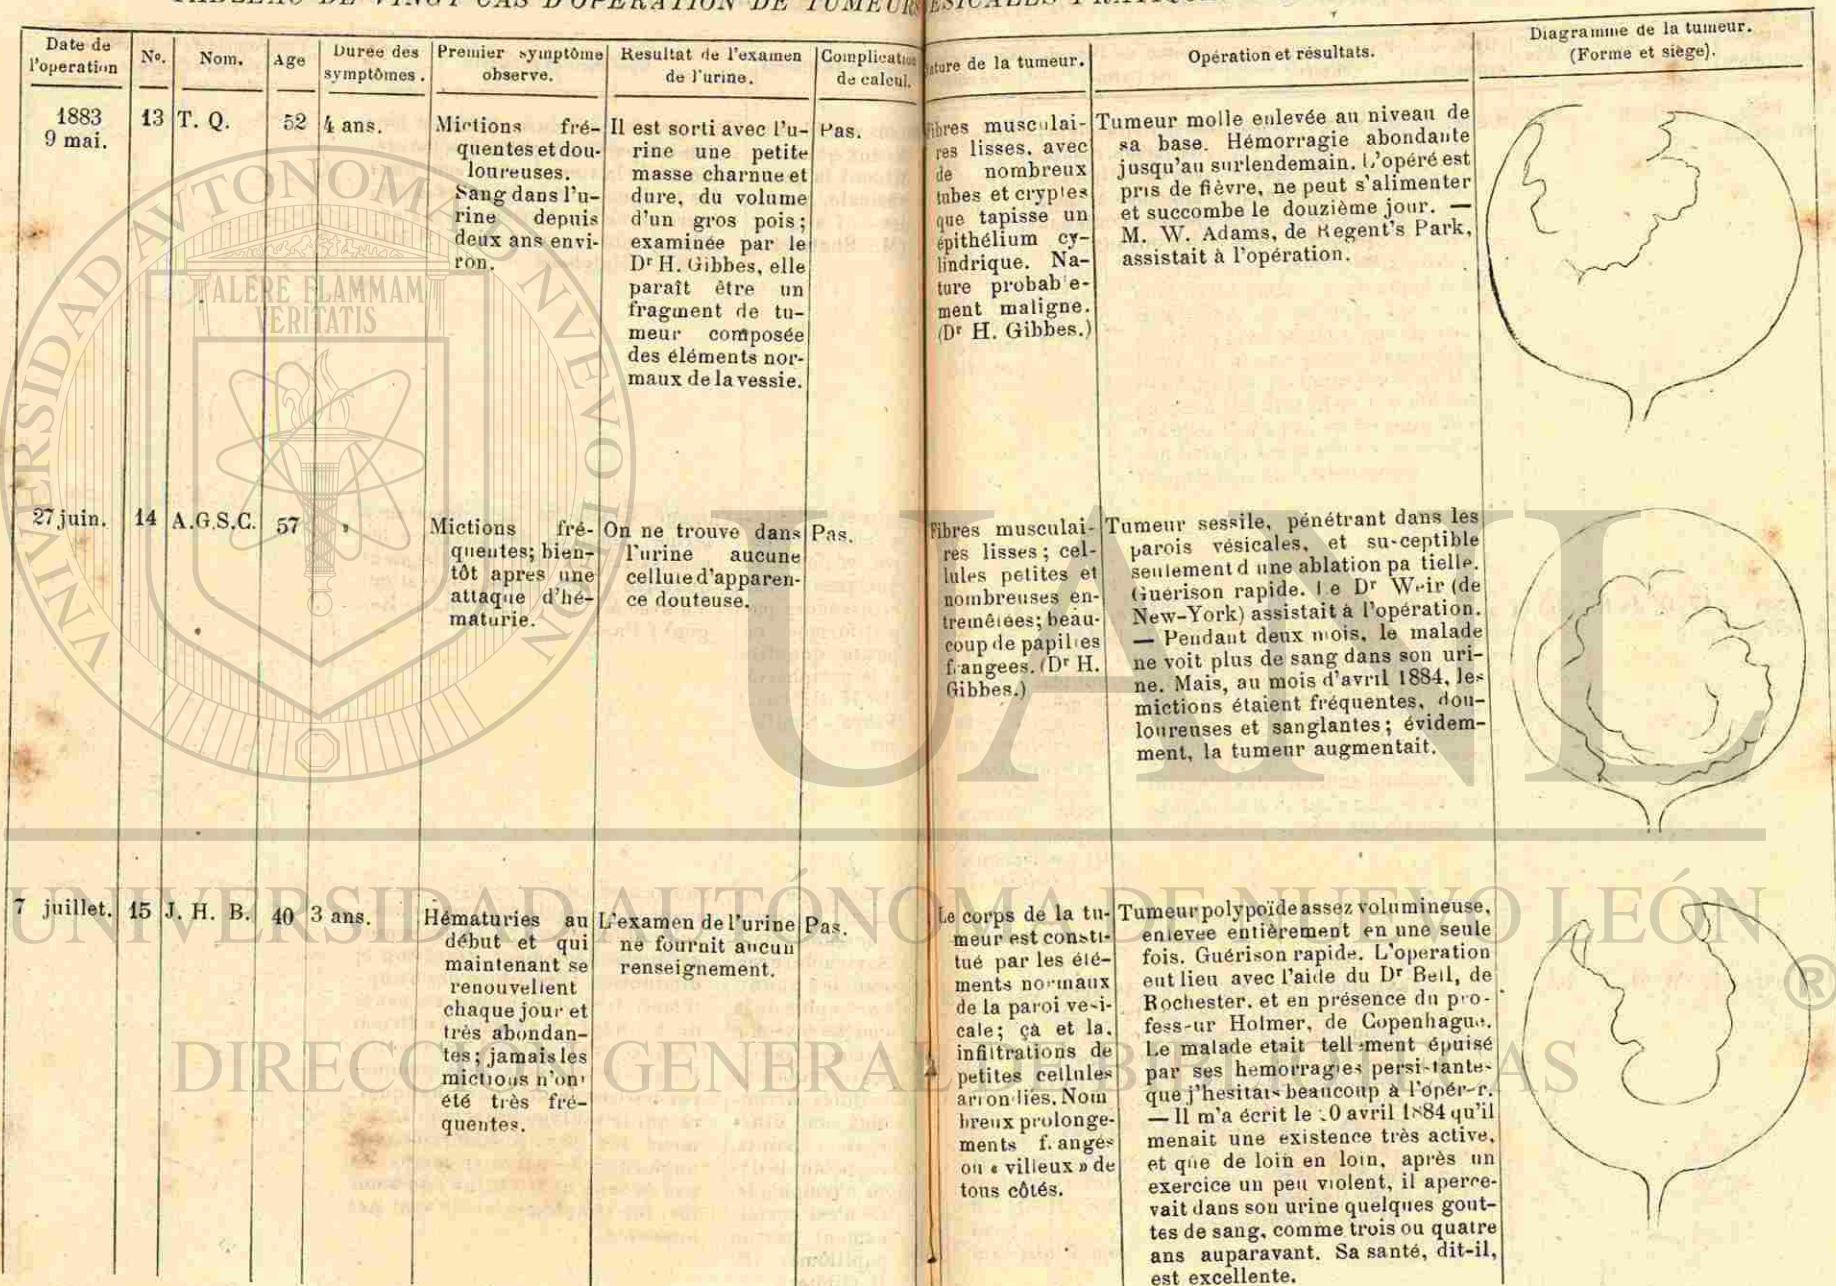 TABLEAU DE VINGT CAS D'OPÉRATION DE TUMEURS
Date de
l'operation
No.
Nom.
Age
Durée des
symptômes.
Premier symptôme
observe.
Resultat de l'examen
de l'urine.
Complication
de calcul.
Nature de la tumeur.
Opération et résultats.
Diagramme de la tumeur.
(Forme et siège).
1883
9 mai.
13
T. Q.
52
4 ans.
Mictions fré-
quentes et dou-
loureuses.
Sang dans l'u-
rine depuis
deux ans envi-
ron.
Il est sorti avec l'u-
rine une petite
masse charnue et
dure, du volume
d'un gros pois;
examinée par le
Dr H. Gibbes, elle
paraît être un
fragment de tu-
meur composée
des éléments nor-
maux de la vessie.
Pas.
Fibres musculai-
res lisses, avec
de nombreux
tubes et cryptes
que tapisse un
épithélium cy-
lindrique. Na-
ture probable-
ment maligne.
(Dr H. Gibbes.)
Tumeur molle enlevée au niveau de
sa base. Hémorragie abondante
jusqu'au surlendemain. L'opéré est
pris de fièvre, ne peut s'alimenter
et succombe le douzième jour. —
M. W. Adams, de Regent's Park,
assistait à l'opération.
27 juin.
14
A.G.S.C.
57
"
Mictions fré-
quentes; bien-
tôt apres une
attaque d'hé-
maturie.
On ne trouve dans
l'urine aucune
cellule d'apparen-
ce douteuse.
Pas.
Fibres musculai-
res lisses; cel-
lules petites et
nombreuses en-
tremêlées; beau-
coup de papilles
frangees. (Dr H.
Gibbes.)
Tumeur sessile, pénétrant dans les
parois vésicales, et susceptible
seulement d'une ablation partielle.
Guérison rapide. Le Dr Weir (de
New-York) assistait à l'opération.
— Pendant deux mois, le malade
ne voit plus de sang dans son uri-
ne. Mais, au mois d'avril 1884, les
mictions étaient fréquentes, dou-
loureuses et sanglantes; évidem-
ment, la tumeur augmentait.
7 juillet.
15
J. H. B.
40
3 ans.
Hématuries au
début et qui
maintenant se
renouvellent
chaque jour et
très abondan-
tes; jamais les
mictions n'ont
été très fré-
quentes.
L'examen de l'urine
ne fournit aucun
renseignement.
Pas.
Le corps de la tu-
meur est consti-
tué par les élé-
ments normaux
de la paroi vesi-
cale; çà et la,
infiltrations de
petites cellules
arrondies. Nom
breux prolonge-
ments frangés
ou « villeux » de
tous côtés.
Tumeur polypoïde assez volumineuse,
enlevee entièrement en une seule
fois. Guérison rapide. L'operation
eut lieu avec l'aide du Dr Bell, de
Rochester, et en présence du pro-
fesseur Holmer, de Copenhague.
Le malade etait tellement épuisé
par ses hemorragies persistantes
que j'hesitais beaucoup à l'opérer.
— Il m'a écrit le avril 1884 qu'il
menait une existence très active,
et que de loin en loin, après un
exercice un peu violent, il aperce-
vait dans son urine quelques gout-
tes de sang, comme trois ou quatre
ans auparavant. Sa santé, dit-il,
est excellente.
UNIVERSIDAD AUTÓNOMA DE NUEVO LEÓN
ALERE FLAMMAM
VERITATIS
UANL
UNIVERSIDAD AUTÓNOMA DE NUEVO LEÓN
®
DIRECCIÓN GENERAL DE BIBLIOTECAS